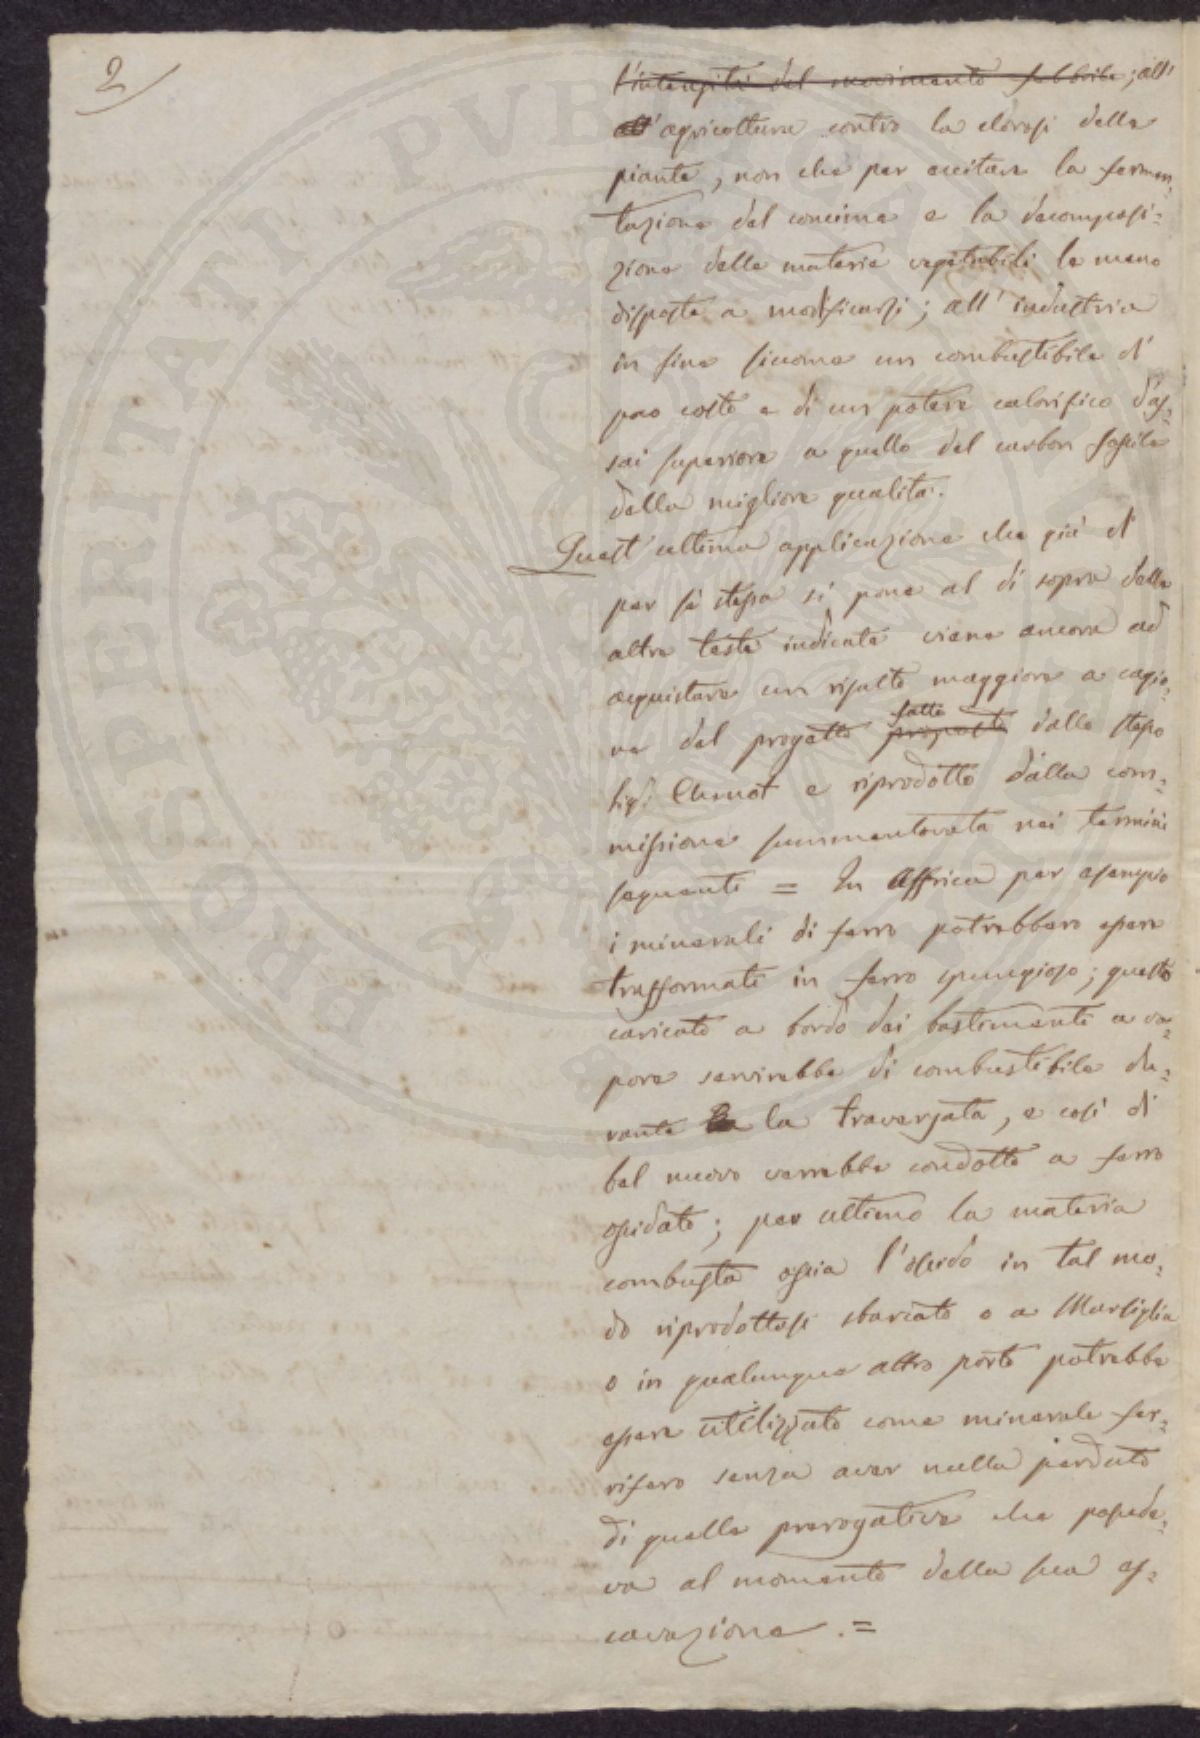 2
l'intensità del movimento febbrile; all'
all' agricoltura contro la clorosi delle
piante, non che per eccitare la fermen-
tazione del concime e la decomposi-
zione delle materie vegetabili le meno
disposte a modificarsi; all' industria
in fine siccome un combustibile di
poco costo e di un potere calorifico d'as-
sai superiore a quello del carbon fossile
della migliore qualità.
Quest' ultima applicazione che già di
per sè stessa si pone al di sopra delle
altre testè indicate viene ancora ad
acquistare un risalto maggiore a cagio-
ne del progetto proposto fatto dallo stesso
Sig.r Chenot e riprodotto dalla com-
missione summentovata nei termini
seguenti = In Affrica per esempio
i minerali di ferro potrebbero essere
trasformati in ferro spungioso; questo
caricato a bordo dei bastimenti a va-
pore servirebbe di combustibile du-
rante la traversata, e così di
bel nuovo verrebbe condotto a ferro
ossidato; per ultimo la materia
combusta ossia l'ossido in tal mo-
do riprodottosi sbarcato o a Marsiglia
o in qualunque altro porto potrebbe
essere utilizzato come minerale fer-
rifero senza aver nulla perduto
di quelle prerogative che possede-
va al momento della sua es-
cavazione. =
PROSPERITATI PVBLICAE